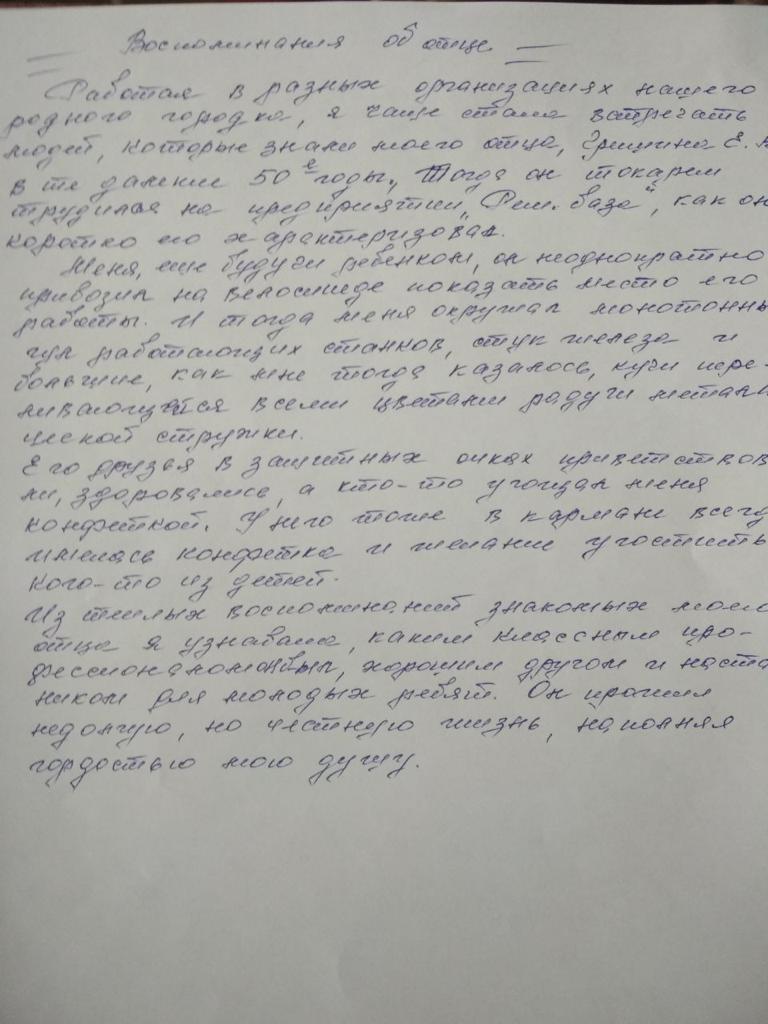 Воспоминания об отце
Работая в разных организациях нашего
родного городка, я чаще стала встречать
людей, которые знали моего отца, Гришина Е.
в те далекие 50е годы. Тогда он токарем
трудился на предприятии "Рем. база", как он
коротко его характеризовал.
Меня, еще будучи ребенком, он неоднократно
привозил на велосипеде показать место его
работы. И тогда меня окружал монотонны
гул работающих станков, стук железа и
большие, как мне тогда казалось, кучи пере-
ливающейся всеми цветами радуги металл
ческой стружки.
Его друзья в защитных очках приветствов
ли, здоровались, а кто-то угощал меня
конфеткой. У него тоже в кармане всегд
имелась конфетка и желание угостить
кого-то из детей.
Из теплых воспоминаний знакомых моего
отца я узнавала, каким классным про-
фессионалом он был, хорошим другом и наста
ником для молодых ребят. Он прожил
недолгую, но честную жизнь, наполняя
гордостью мою душу.